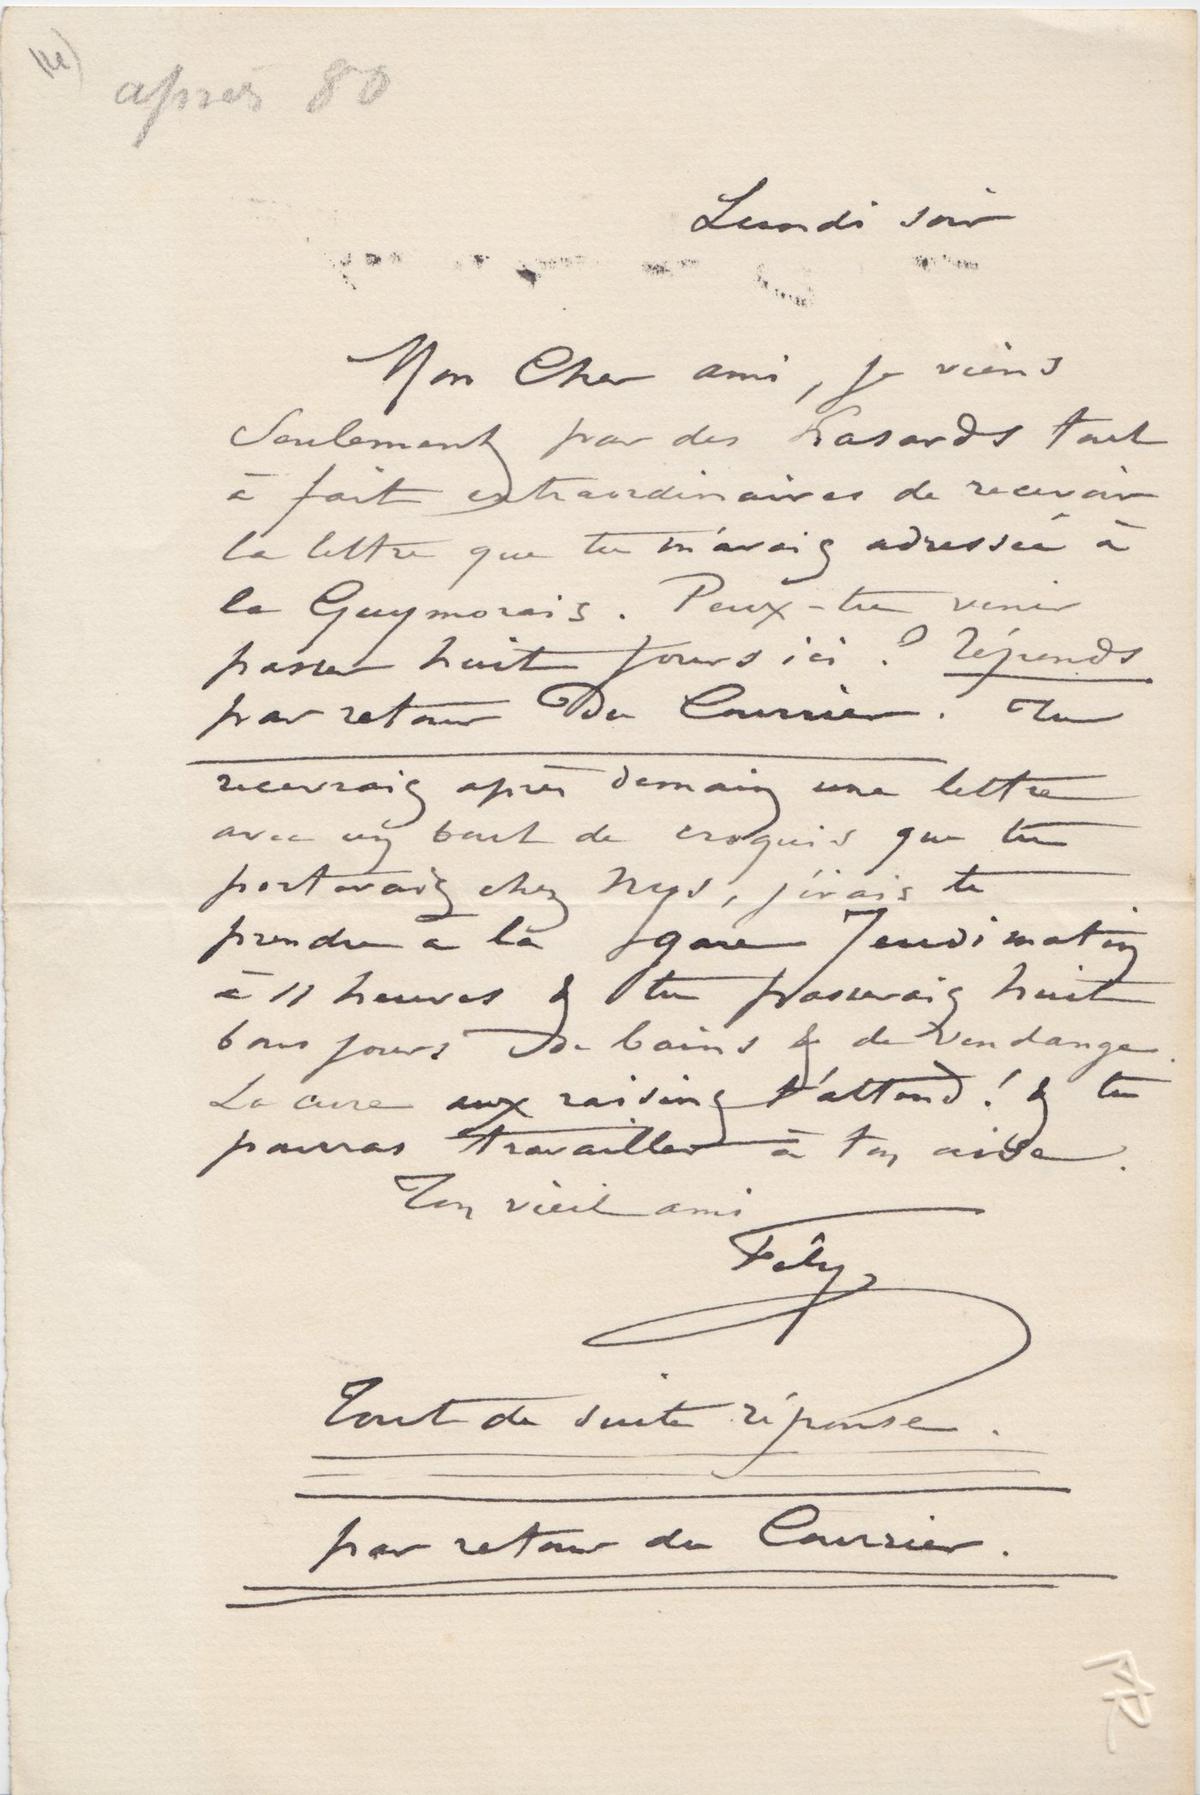 après 80
Lundi soir
Mon Cher ami, je viens
seulement par des hasards tout
à fait extraordinaires de recevoir
la lettre que tu m'avais adressée à
la Guymorais. Peux-tu venir
passer huit jours ici ? Réponds
par retour du Courrier. Tu
recevrais après demain une lettre
avec un bout de croquis que tu
porterais chez Nys, j'irais te
prendre à la gare Jeudi matin
à 11 heures & tu passerais huit
bons jours de bains & de vendange.
La cure aux raisins t'attend ! & tu
pourras travailler à ton aise.
Ton vieil ami
Fély
Tout de suite réponse.
par retour du Courrier.
FR